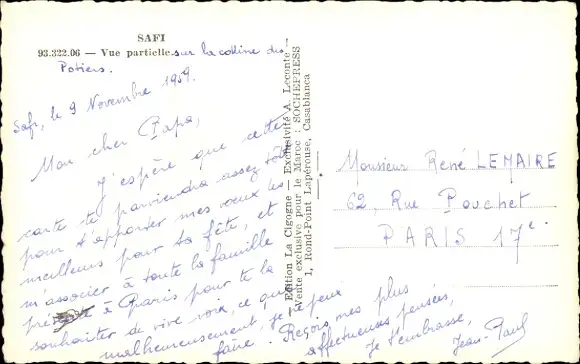 SAFI
93.322.06 — Vue partielle sur la colline des
Potiers.
Safi, le 9 Novembre 1959.
Mon cher Papa,
J'espère que cette
carte te parviendra assez tôt
pour t'apporter mes vœux les
meilleurs pour ta fête, et
m'associer à toute la famille
à Paris pour te la
souhaiter de vive voix, ce que
malheureusement, je ne peux
faire. Reçois mes plus
affectueuses pensées,
Je t'embrasse,
Jean-Paul
Edition La Cigogne — Exclusivité A. Leconte —
Vente exclusive pour le Maroc : SOCHEPRESS
1, Rond-Point Lapérouse, Casablanca
Monsieur René LEMAIRE
62, Rue Pouchet
PARIS 17e.